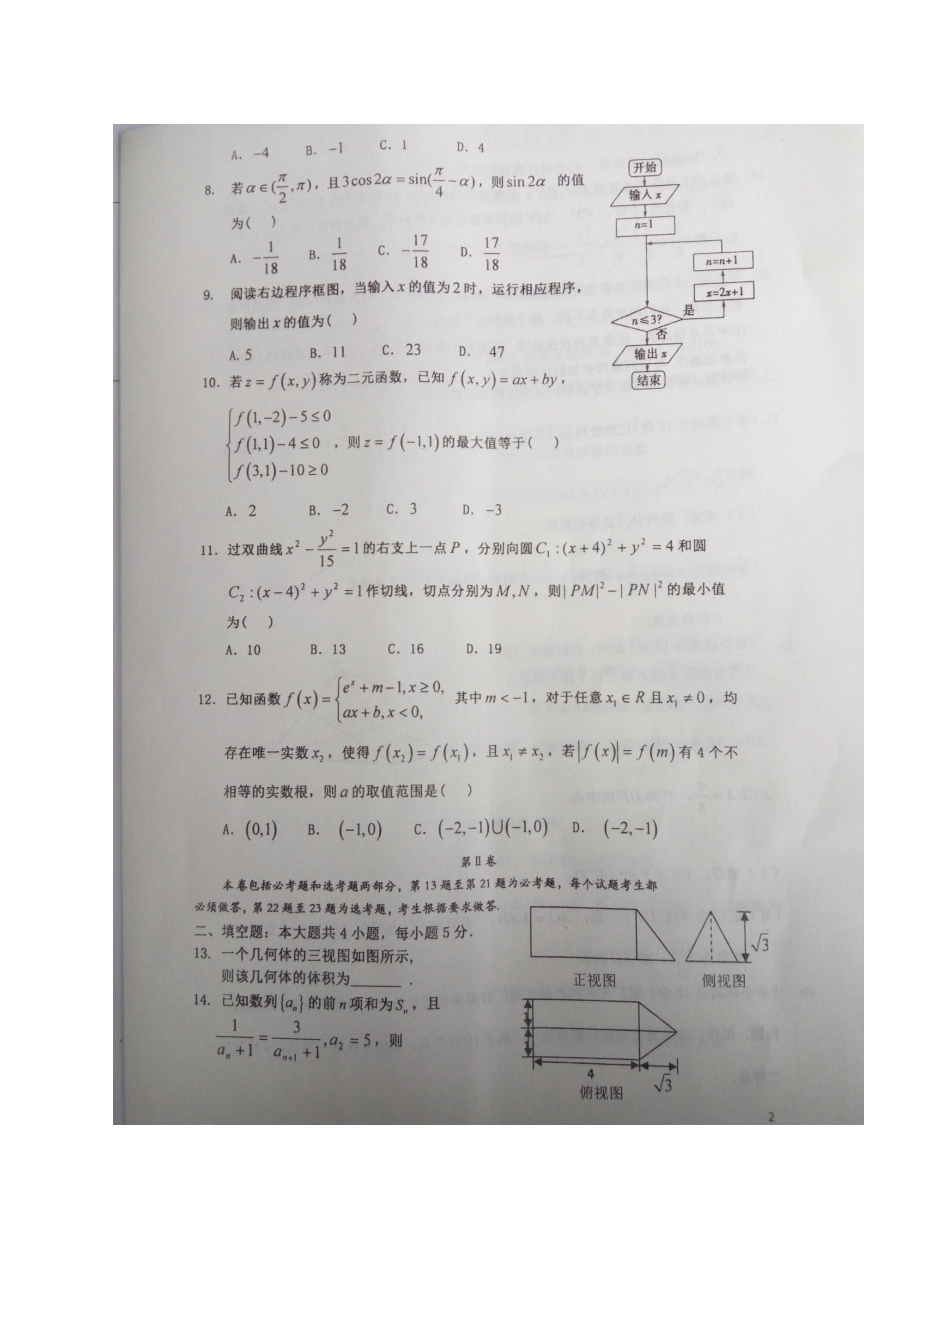 A. -4    B. -1    C. 1    D. 4
8. 若α∈(π/2,π)，且3cos2α=sin(π/4-α)，则sin2α 的值
为(    )
A. -1/18    B. 1/18    C. -17/18    D. 17/18
9. 阅读右边程序框图，当输入x的值为2时，运行相应程序，
则输出x的值为(    )
A. 5    B. 11    C. 23    D. 47
开始
输入x
n=1
n=n+1
x=2x+1
n≤3?
是
否
输出x
结束
10. 若z=f(x,y)称为二元函数，已知f(x,y)=ax+by，
{f(1,-2)-5≤0
f(1,1)-4≤0 ，则z=f(-1,1)的最大值等于(    )
f(3,1)-10≥0
A. 2    B. -2    C. 3    D. -3
11. 过双曲线x²-y²/15=1的右支上一点P，分别向圆C₁:(x+4)²+y²=4和圆
C₂:(x-4)²+y²=1作切线，切点分别为M,N，则|PM|²-|PN|²的最小值
为(    )
A. 10    B. 13    C. 16    D. 19
12. 已知函数f(x)={eˣ+m-1,x≥0, ax+b,x<0, 其中m<-1，对于任意x₁∈R且x₁≠0，均
存在唯一实数x₂，使得f(x₂)=f(x₁)，且x₁≠x₂，若|f(x)|=f(m)有4个不
相等的实数根，则a的取值范围是(    )
A. (0,1)    B. (-1,0)    C. (-2,-1)∪(-1,0)    D. (-2,-1)
第Ⅱ卷
本卷包括必考题和选考题两部分，第13题至第21题为必考题，每个试题考生都
必须做答，第22题至23题为选考题，考生根据要求做答.
二、填空题：本大题共4小题，每小题5分.
13. 一个几何体的三视图如图所示，
则该几何体的体积为______.
14. 已知数列{aₙ}的前n项和为Sₙ，且
1/(aₙ+1)=3/(aₙ₊₁+1),a₂=5，则
√3
正视图
侧视图
1
1
4
√3
俯视图
2